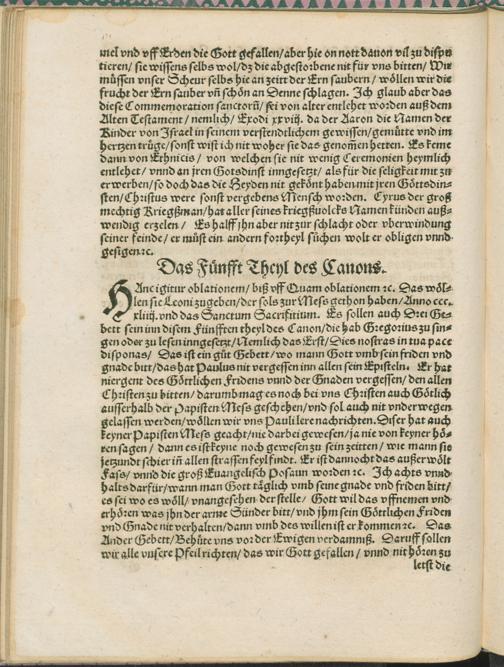 mel vnd vff Erden die Gott gefallen/aber hie on nott dauon vil zu dispu
tieren/sie wissens selbs wol/dz die abgestorbene nit für vns bitten/Wir
müssen vnser Scheur selbs hie an zeitt der Ern saubern/wöllen wir die
frucht der Ern sauber vñ schön an Denne schlagen. Ich glaub aber das
diese Commemoration sanctorũ/sei von alter entlehet worden auß dem
Alten Testament/nemlich/Exodi xxviij. da der Aaron die Namen der
Kinder von Israel in seinem verstendtlichem gewissen/gemütte vnd im
hertzen trüge/sonst wist ich nit woher sie das genommen hetten. Es keme
dann von Ethnicis/ von welchen sie nit wenig Ceremonien heymlich
entlehet/vnnd an jren Gotsdinst inngesetzt/als für die seligkeit mit zu
erwerben/so doch das die Heyden nit gekönt haben mit jren Göttsdin-
sten/Christus were sonst vergebens Mensch worden. Cyrus der groß
mechtig Kriegßman/hat aller seines kriegßuolcks Namen künden auß-
wendig erzelen/ Es halff jhn aber nit zur schlacht oder vberwindung
seiner feinde/er müst ein andern fortheyl süchen wolt er obligen vnnd
gesigen ꝛc.
Das Fünfft Theyl des Canons.
HAnc igitur oblationem/biß vff Quam oblationem ꝛc. Das wöl-
len sie Leoni zugeben/der sols zur Mess gethon haben/Anno cccc.
xliiij. vnd das Sanctum Sacrifitium. Es sollen auch Drei Ge-
bett sein inn disem Fünfften theyl des Canon/die hab Gregorius zu sin-
gen oder zu lesen inngesetzt/Nemlich das Erst/Dies nostras in tua pace
disponas/ Das ist ein güt Gebett/wo mann Gott vmb sein friden vnd
gnade bitt/das hat Paulus nit vergessen inn allen sein Episteln. Er hat
niergent des Göttlichen Fridens vnnd der Gnaden vergessen/den allen
Christen zu bitten/darumb mag es noch bei vns Christen auch Götlich
ausserhalb der Papisten Mess geschehen/vnd sol auch nit vnderwegen
gelassen werden/wöllen wir vns Pauli lere nachrichten. Diser hat auch
keyner Papisten Mess geacht/nie darbei gewesen/ja nie von keyner hö-
ren sagen/dann es ist keyne noch gewesen zu sein zeitten/wie mann sie
jetzundt schier iñ allen strassen feyl findt. Er ist dannocht das ausserwölt
Fass/vnnd die groß Euangelisch Posaun worden ꝛc. Ich achts vnnd
halts darfür/wann man Gott täglich vmb seine gnade vnd friden bitt/
es sei wo es wöll/vnangesehen der stelle/Gott wil das vffnemen vnd
erhören was jhn der arme Sünder bitt/vnd jhm sein Göttlichen Friden
vnd Gnade nit verhalten/dann vmb des willen ist er kommen ꝛc. Das
Ander Gebett/Behüte vns vor der Ewigen verdamniß. Daruff sollen
wir alle vnsere Pfeil richten/das wir Gott gefallen/vnnd nit hören zu
letst die